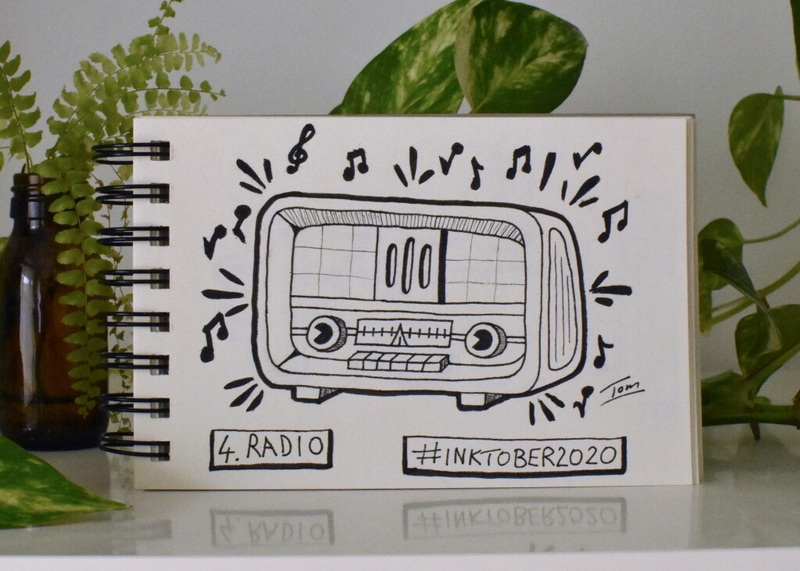 Tom
4. RADIO
#INKTOBER2020